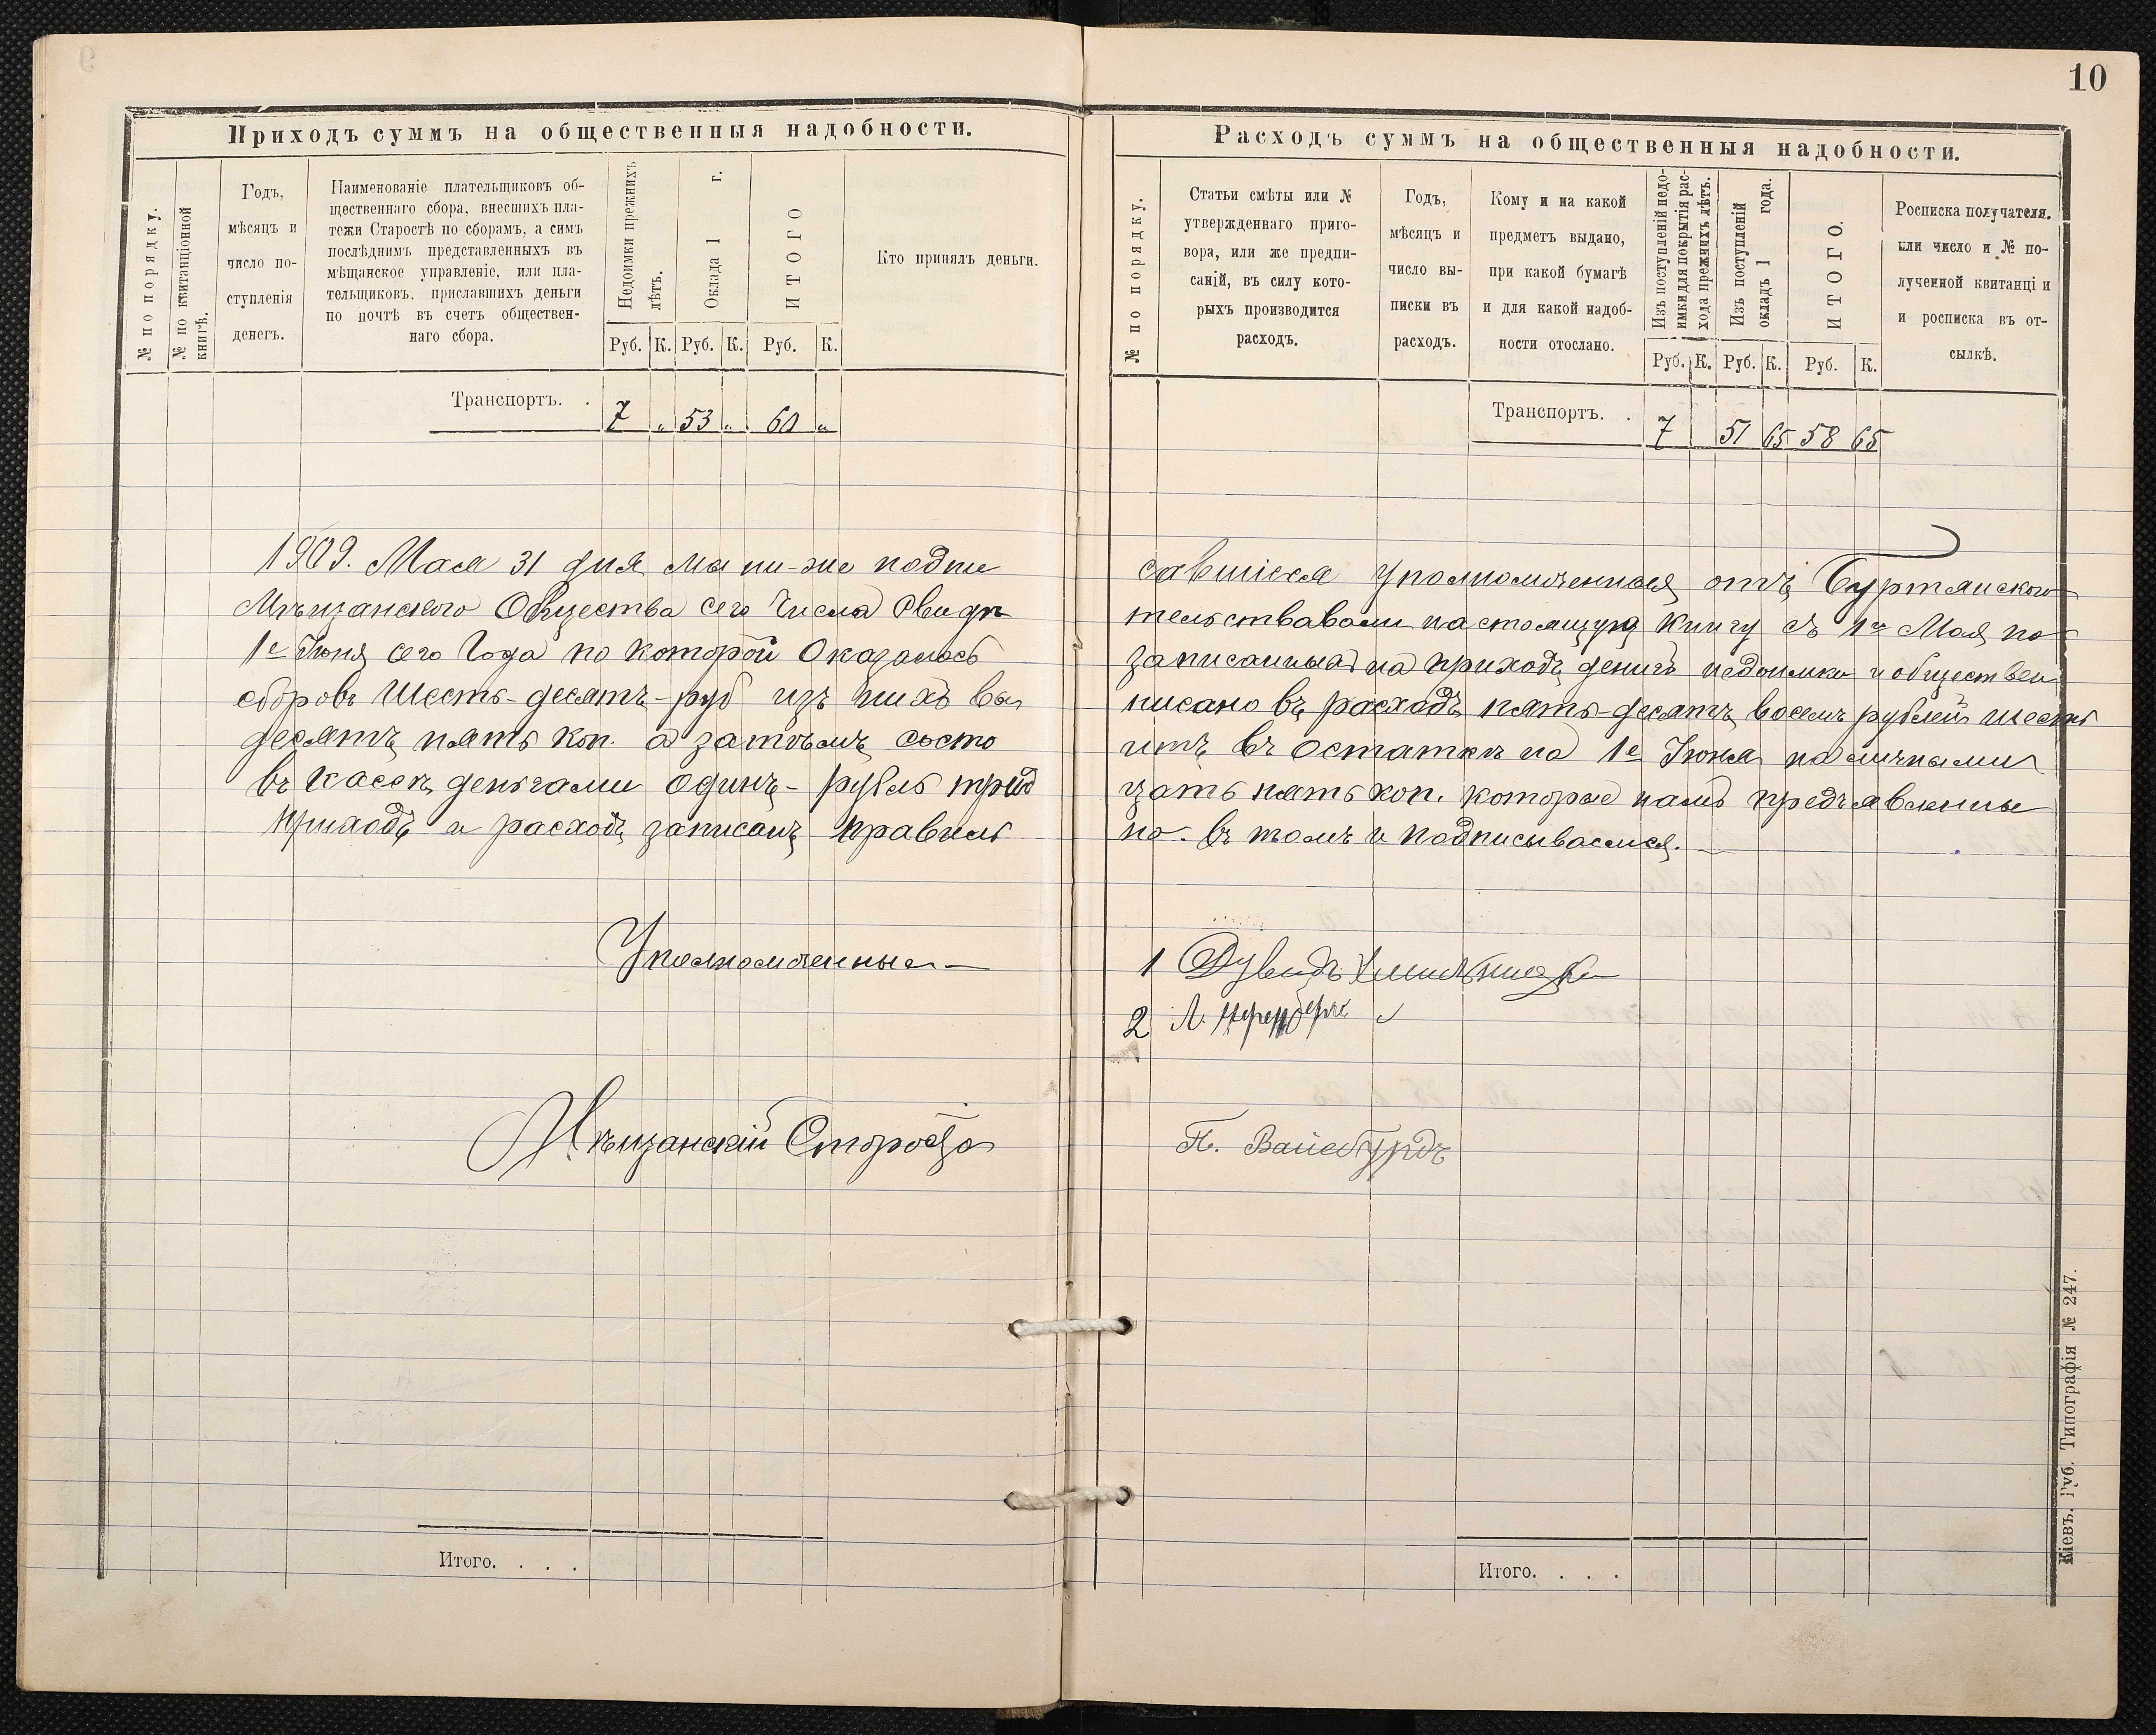 10
Приходъ суммъ на общественныя надобности.
№ по порядку.
№ по квитанціонной
книгѣ.
Годъ,
мѣсяцъ и
число по-
ступленія
денегъ.
Наименованіе плательщиковъ об-
щественнаго сбора, внесшихъ пла-
тежи Старостѣ по сборамъ, а симъ
послѣднимъ представленныхъ въ
мѣщанское управленіе, или пла-
тельщиковъ, приславшихъ деньги
по почтѣ въ счетъ обществен-
наго сбора.
Недоимки прежнихъ
лѣтъ.
Оклада 1 г.
ИТОГО
Кто принялъ деньги.
Руб. К. Руб. К. Руб. К.
Транспортъ. . 7 „ 53 „ 60 „
1909. Мая 31 дня мы ни-же подпи
Мѣщанского Общества сего Числа Свидѣ
1е Іюня сего Года по которой Оказалось
сборовъ Шесть-десятъ-руб изъ нихъ вы
десятъ пять коп. а затѣмъ состо
въ Кассѣ деньгами Одинъ-рубль трид
приходъ и расходъ записанъ правиль
Уполномоченные
Мѣщанскій Староста
Итого. . . .
Расходъ суммъ на общественныя надобности.
№ по порядку.
Статьи смѣты или №
утвержденнаго приго-
вора, или же предпи-
саній, въ силу кото-
рыхъ производится
расходъ.
Годъ,
мѣсяцъ и
число вы-
писки въ
расходъ.
Кому и на какой
предметъ выдано,
при какой бумагѣ
и для какой надоб-
ности отослано.
Изъ поступленій недо-
имки для покрытія рас-
хода прежнихъ лѣтъ.
Изъ поступленій
окладъ 1 года.
ИТОГО.
Росписка получателя.
или число и № по-
лученной квитанціи
и росписка въ от-
сылкѣ.
Руб. К. Руб. К. Руб. К.
Транспортъ. . 7 51 65 58 65
савшіеся уполномоченныя отъ Буртянского
тельствавали настоящую Книгу съ 1го Мая по
записанныя на приходъ денигъ недоимки и обществен
писано въ расходъ пять-десятъ восемъ рублей шесть
итъ въ Остаткѣ на 1е Іюня наличными
цать пять коп. которые намъ предъявлены
но. въ томъ и подписываемся.
1 Дувидъ
2 Л.
П. Вайсбурдъ
Итого. . . .
Кіевъ. Губ. Типографія № 247.